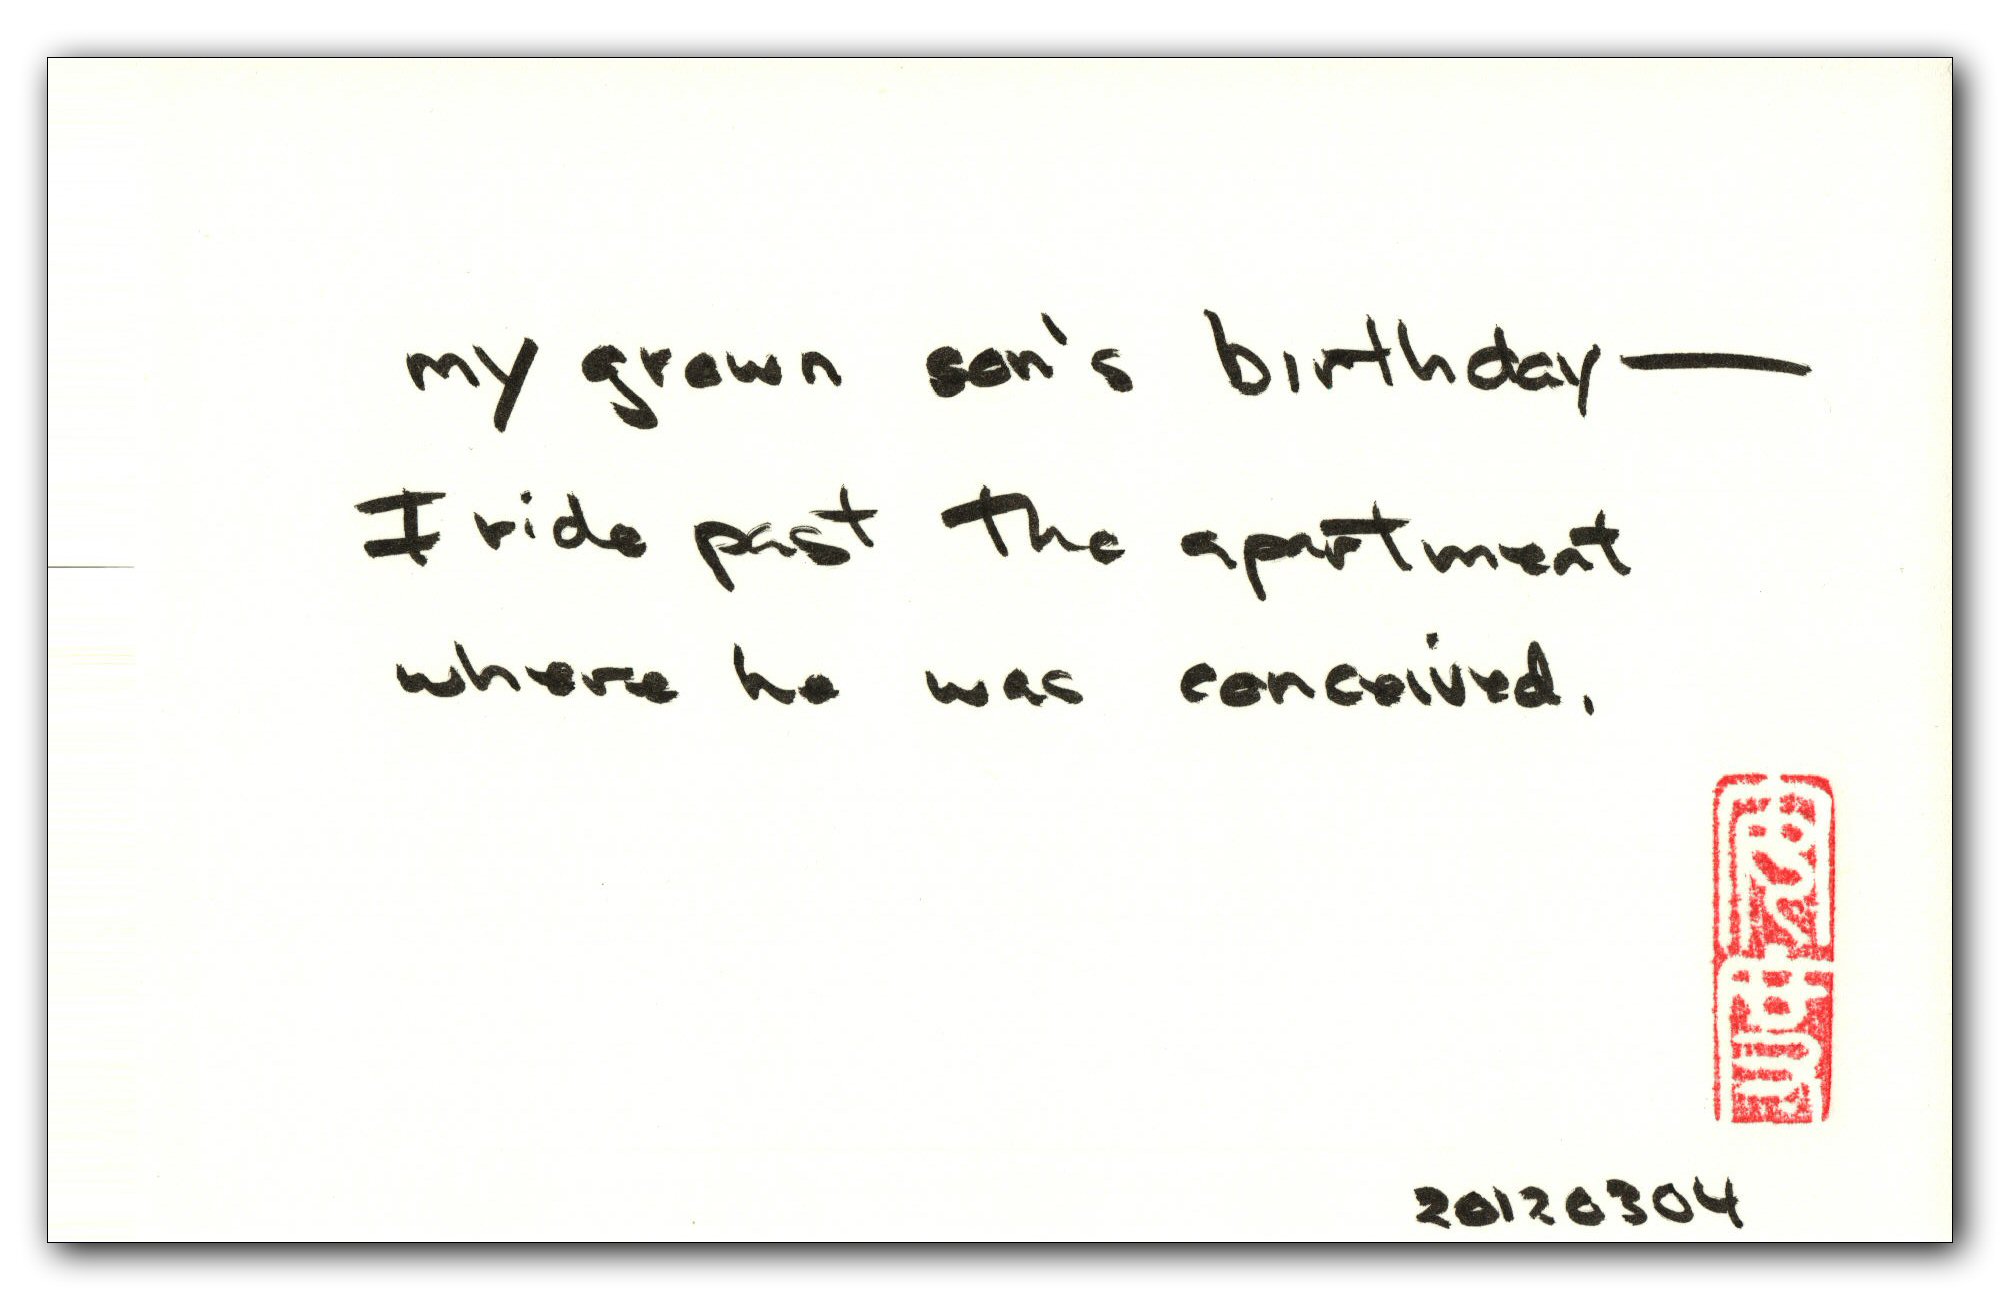 my grown son's birthday—
I ride past the apartment
where he was conceived.
20120304